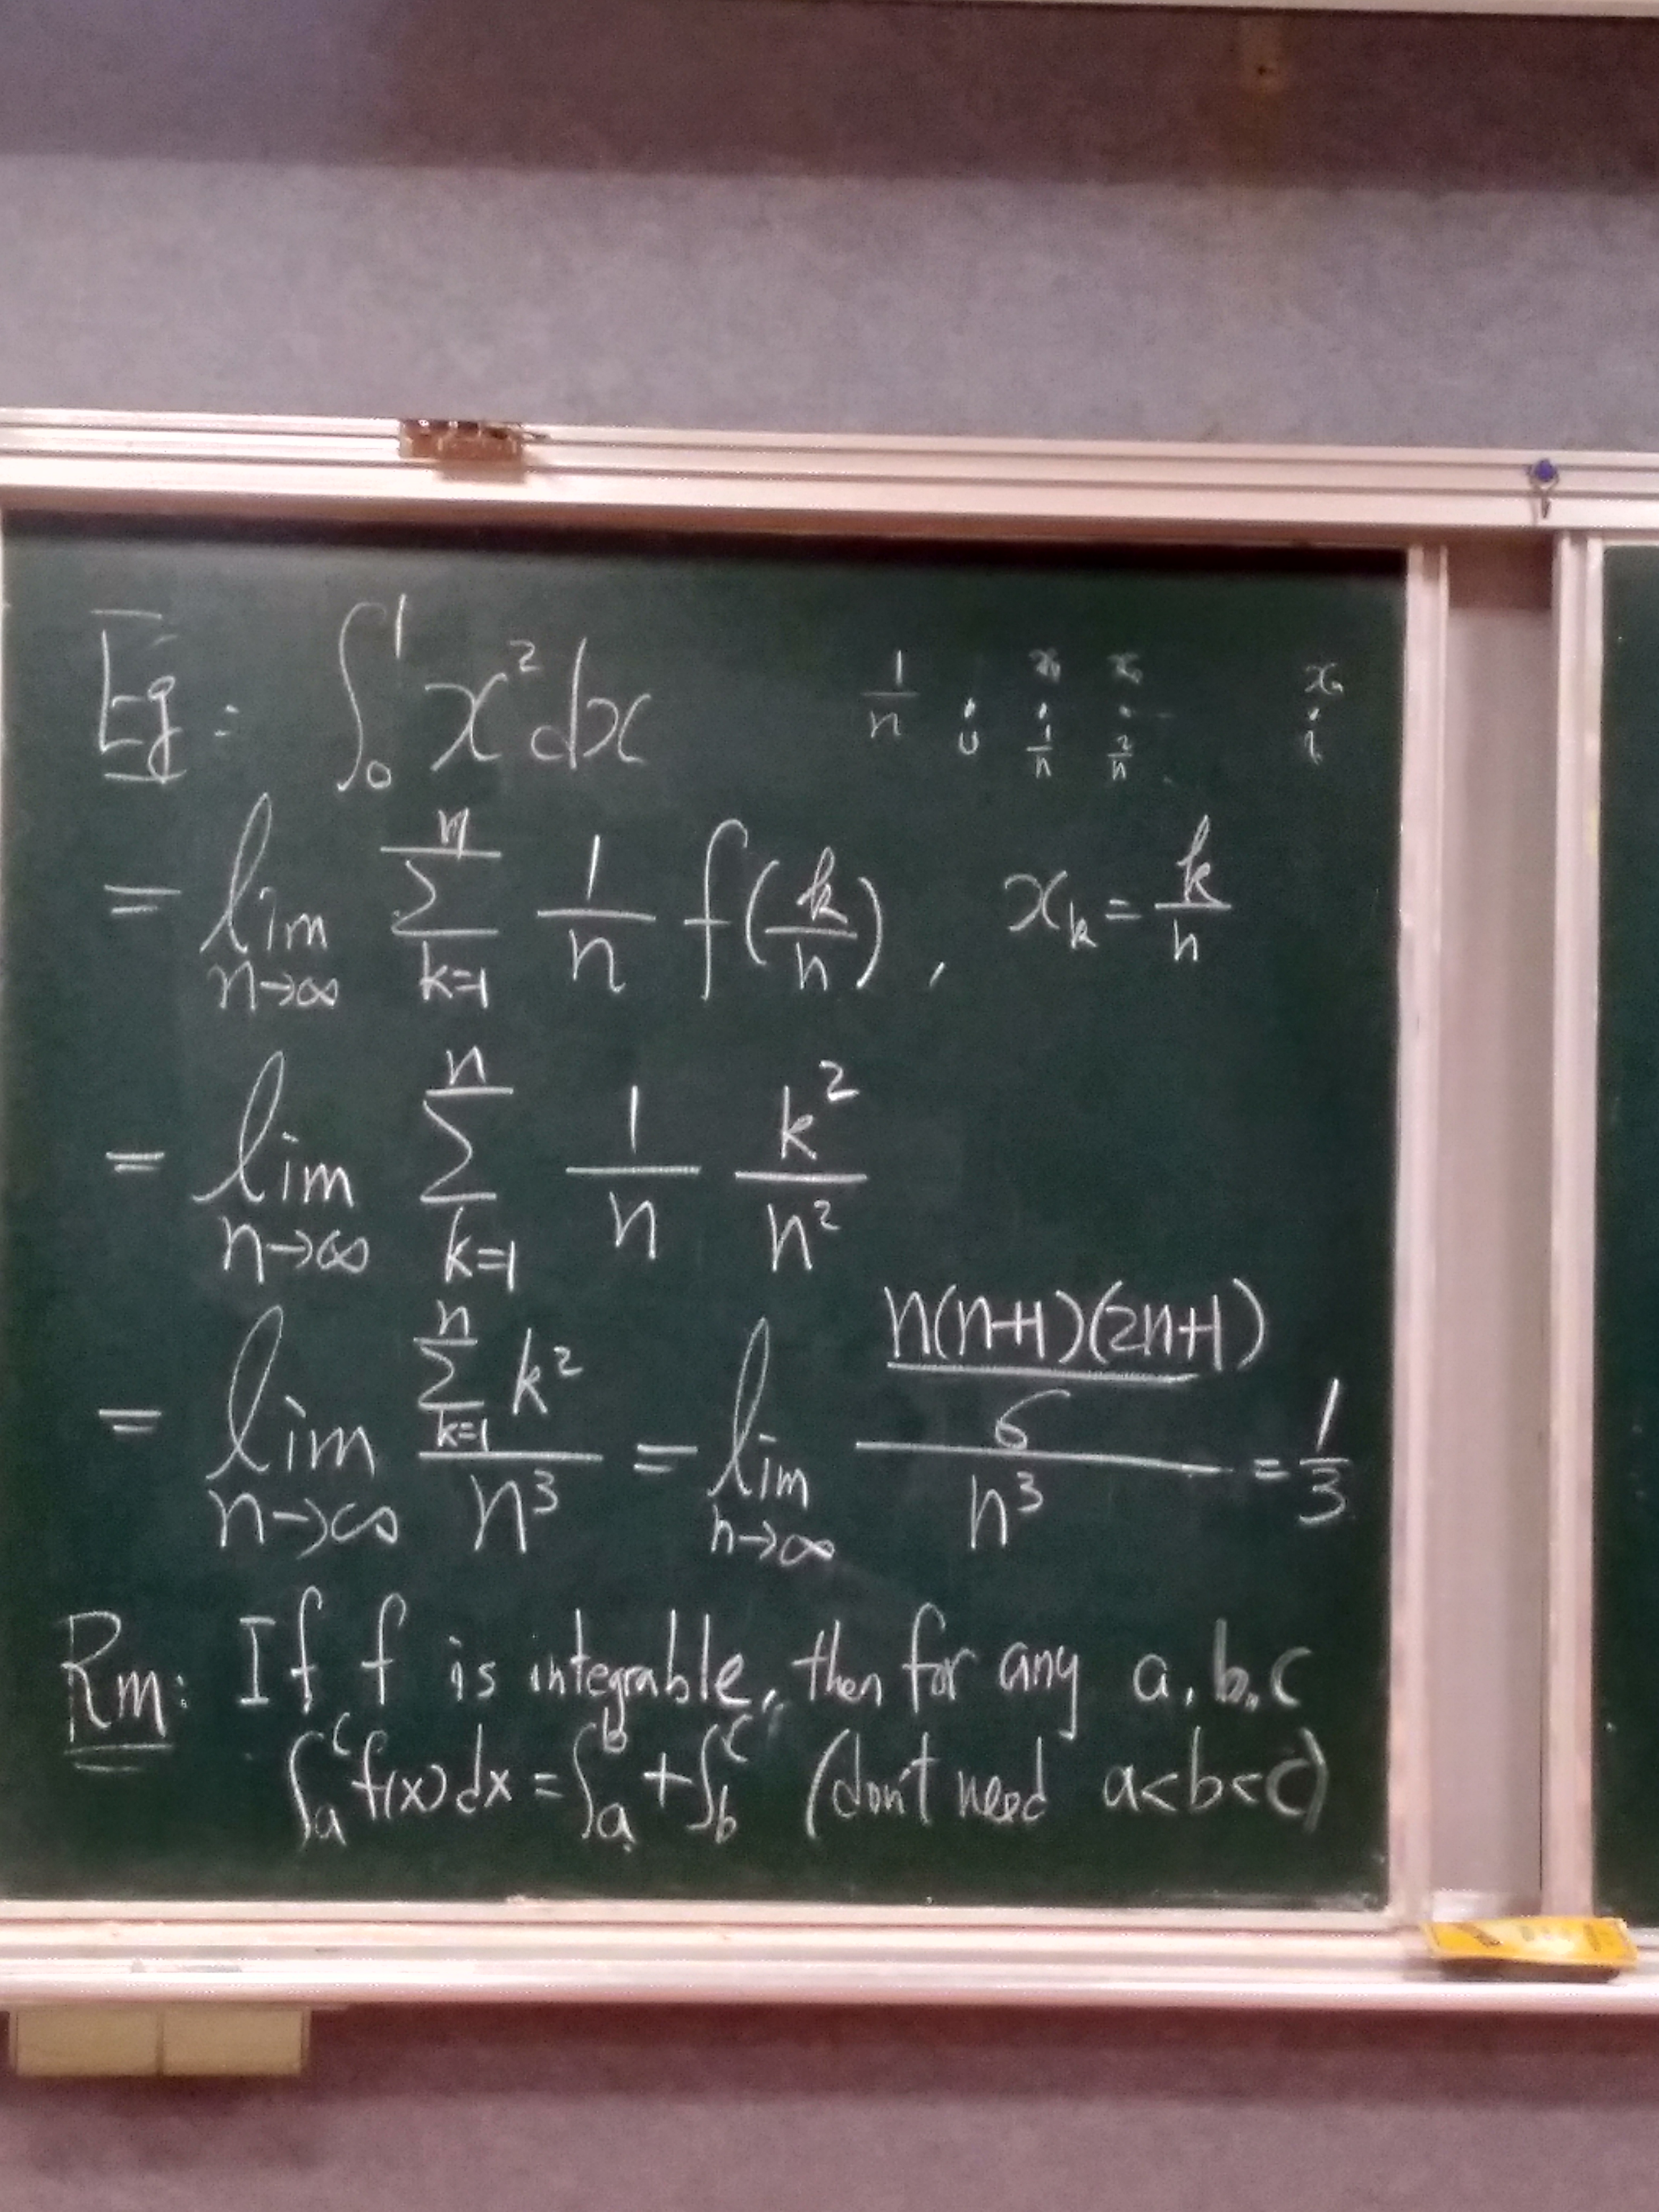 Eg: ∫₀¹ x² dx    1/n    0    x₁ 1/n    x₂ 2/n    xₙ 1
= lim_{n→∞} ∑_{k=1}^{n} 1/n f(k/n),   x_k = k/n
= lim_{n→∞} ∑_{k=1}^{n} 1/n k²/n²
= lim_{n→∞} (∑_{k=1}^{n} k²)/n³ = lim_{n→∞} (n(n+1)(2n+1)/6)/n³ = 1/3
Rm: If f is integrable, then for any a, b, c
∫_a^c f(x) dx = ∫_a^b + ∫_b^c (don't need a<b<c)